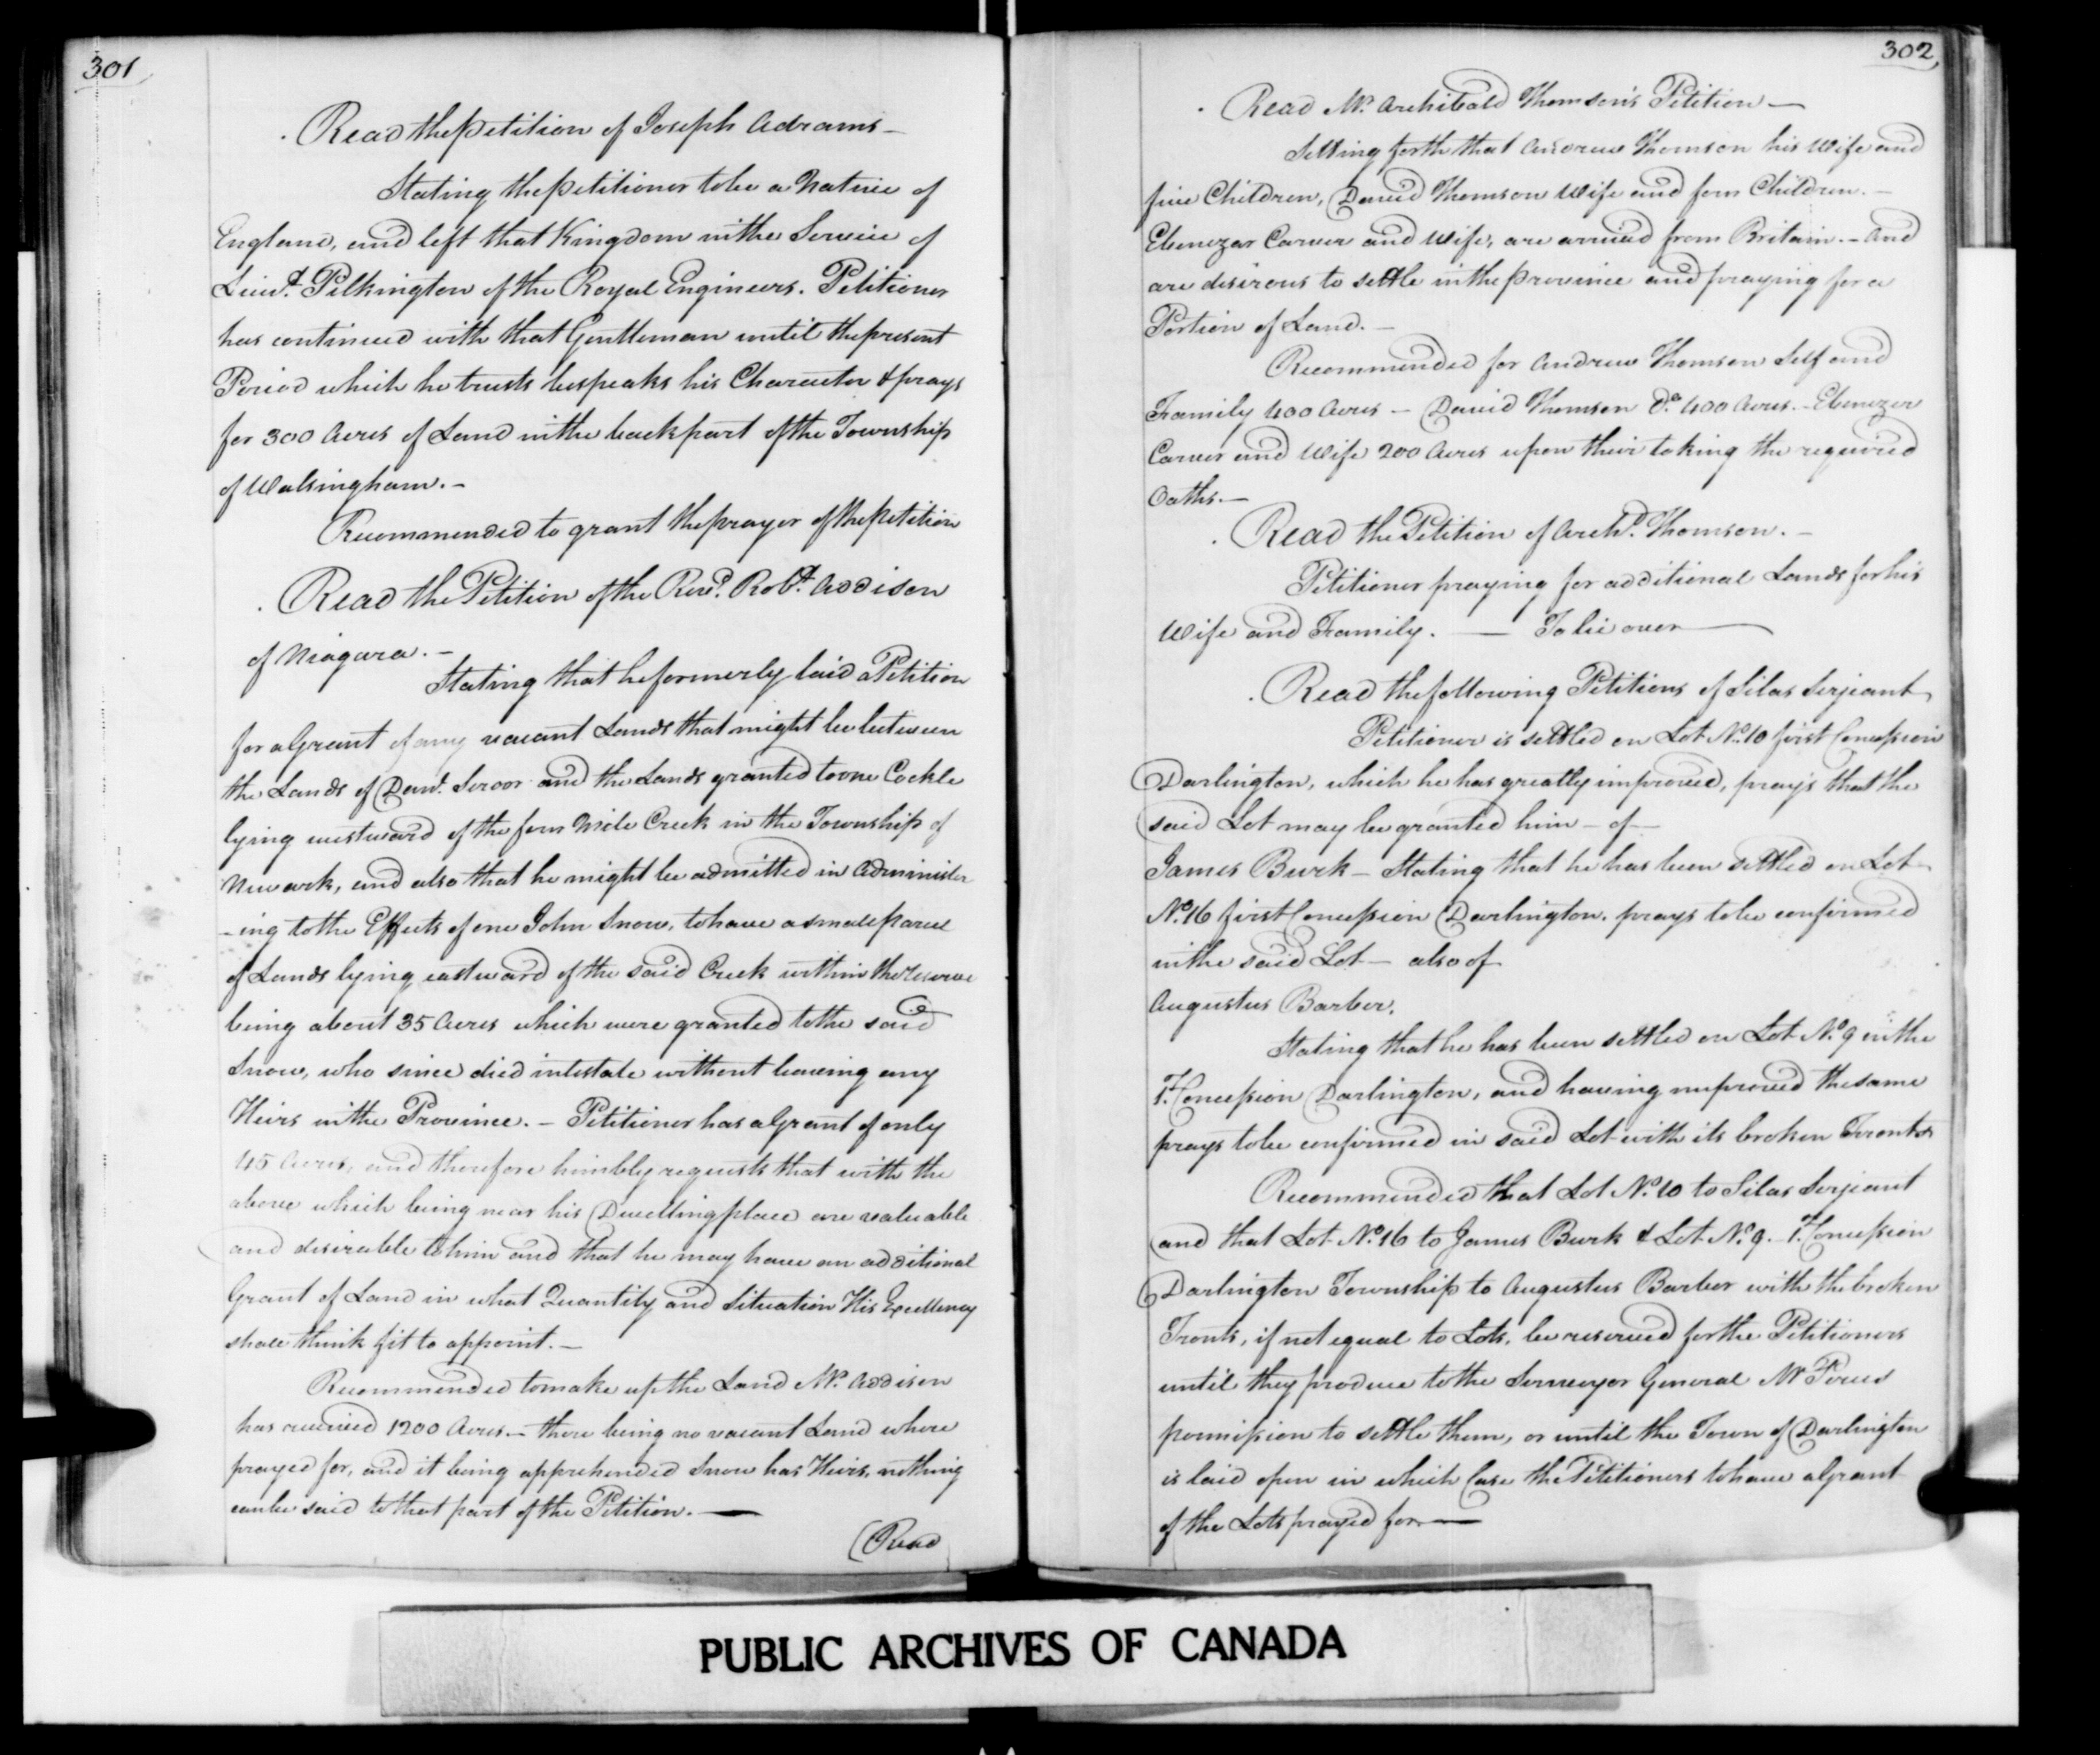 301
Read the petition of Joseph Adrams —
Stating the petitioner to be a Native of
England, and left that Kingdom in the Service of
Lieut. Pilkington of the Royal Engineers. Petitioner
has continued with that Gentleman until the present
Period which he trusts bespeaks his Character & prays
for 300 Acres of Land in the back part of the Township
of Walsingham. —
Recommended to grant the prayer of the petition
Read the Petition of the Revd. Robt. Addison
of Niagara. —
Stating that he formerly laid a Petition
for a Grant of any vacant Lands that might be between
the Lands of Danl. Servos and the Lands granted to one Cockle
lying westward of the four Mile Creek in the Township of
Newark, and also that he might be admitted in Administer
-ing to the Effects of one John Snow, to have a small parcel
of Lands lying eastward of the said Creek within the reserve
being about 35 Acres which were granted to the said
Snow, who since died intestate without leaving any
Heirs in the Province. — Petitioner has a Grant of only
45 Acres, and therefore humbly requests that with the
above which being near his Dwelling place are valuable
and desirable to him and that he may have an additional
Grant of Land in what Quantity and Situation His Excellency
shall think fit to appoint. —
Recommended to make up the Land Mr. Addison
has received 1200 Acres. — there being no vacant Land where
prayed for, and it being apprehended Snow has Heirs, nothing
can be said to that part of the Petition. —
(Read
302
Read Mr. Archibald Thomson's Petition —
Setting forth that Andrew Thomson his Wife and
five Children, David Thomson Wife and four Children. —
Ebenezar Carver and Wife, are arrived from Britain. — And
are desirous to settle in the province and praying for a
Portion of Land. —
Recommended for Andrew Thomson Self and
Family 400 Acres — David Thomson Do. 400 Acres. — Ebenezer
Carver and Wife 200 Acres upon their taking the required
Oaths. —
Read the Petition of Archd. Thomson. —
Petitioner praying for additional Lands for his
Wife and Family. — To lie over —
Read the following Petitions of Silas Serjeant
Petitioner is settled on Lot No. 10 first Concession
Darlington, which he has greatly improved, prays that the
said Lot may be granted him — of —
James Burk — Stating that he has been settled on Lot
No. 16 first Concession Darlington. prays to be confirmed
in the said Lot — also of
Augustus Barber.
Stating that he has been settled on Lot No. 9 in the
1st. Concession Darlington, and having improved the same
prays to be confirmed in said Lot with its broken Fronts
Recommended that Lot No. 10 to Silas Serjeant
and that Lot No. 16 to James Burk & Lot No. 9. 1st. Concession
Darlington Township to Augustus Barber with the broken
Fronts, if not equal to Lots, be reserved for the Petitioners
until they produce to the Surveyor General Mr
permission to settle them, or until the Town of Darlington
is laid open in which Case the Petitioners to have a Grant
of the Lots prayed for —
PUBLIC ARCHIVES OF CANADA